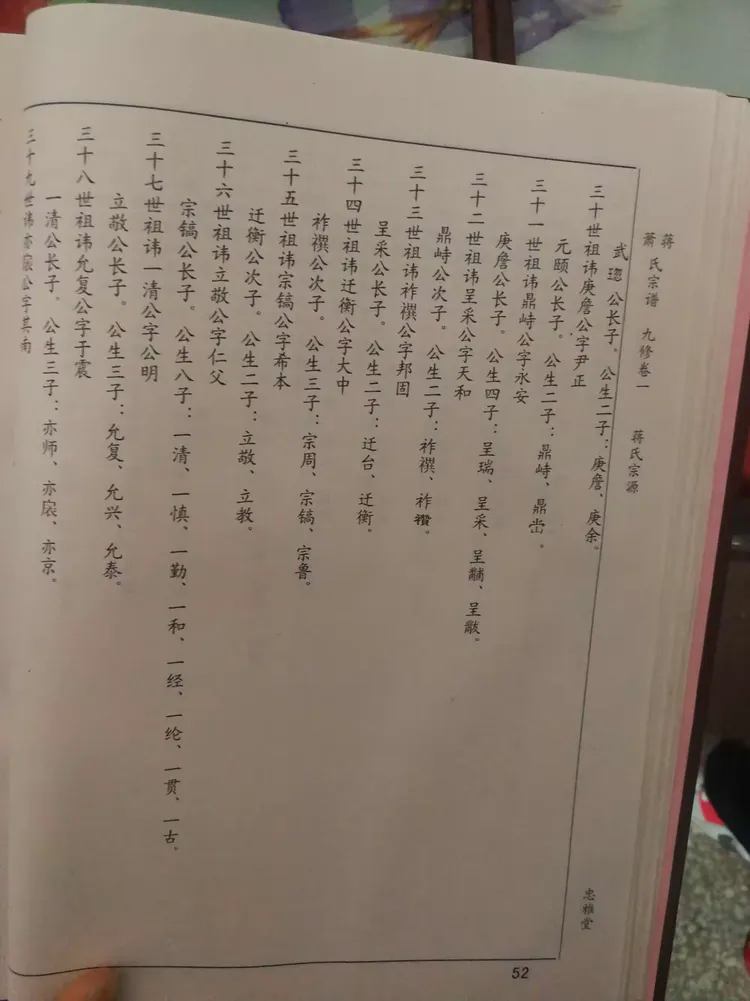 蒋
萧
氏宗谱 九修卷一 蒋氏宗源
忠雅堂
武璁公长子。公生二子：庚詹、庚余。
三十世祖讳庚詹公字尹正
元颐公长子。公生二子：鼎峙、鼎。
三十一世祖讳鼎峙公字永安
庚詹公长子。公生四子：呈瑞、呈采、呈黼、呈黻。
三十二世祖讳呈采公字天和
鼎峙公次子。公生二子：祚禩、祚。
三十三世祖讳祚禩公字邦固
呈采公长子。公生二子：迁台、迁衡。
三十四世祖讳迁衡公字大中
祚禩公次子。公生三子：宗周、宗镐、宗鲁。
三十五世祖讳宗镐公字希本
迁衡公次子。公生二子：立敬、立教。
三十六世祖讳立敬公字仁父
宗镐公长子。公生八子：一清、一慎、一勤、一和、一经、一纶、一贯、一古。
三十七世祖讳一清公字公明
立敬公长子。公生三子：允复、允兴、允泰。
三十八世祖讳允复公字于震
一清公长子。公生三子：亦师、亦、亦京。
三十九世讳亦公字其雨
52